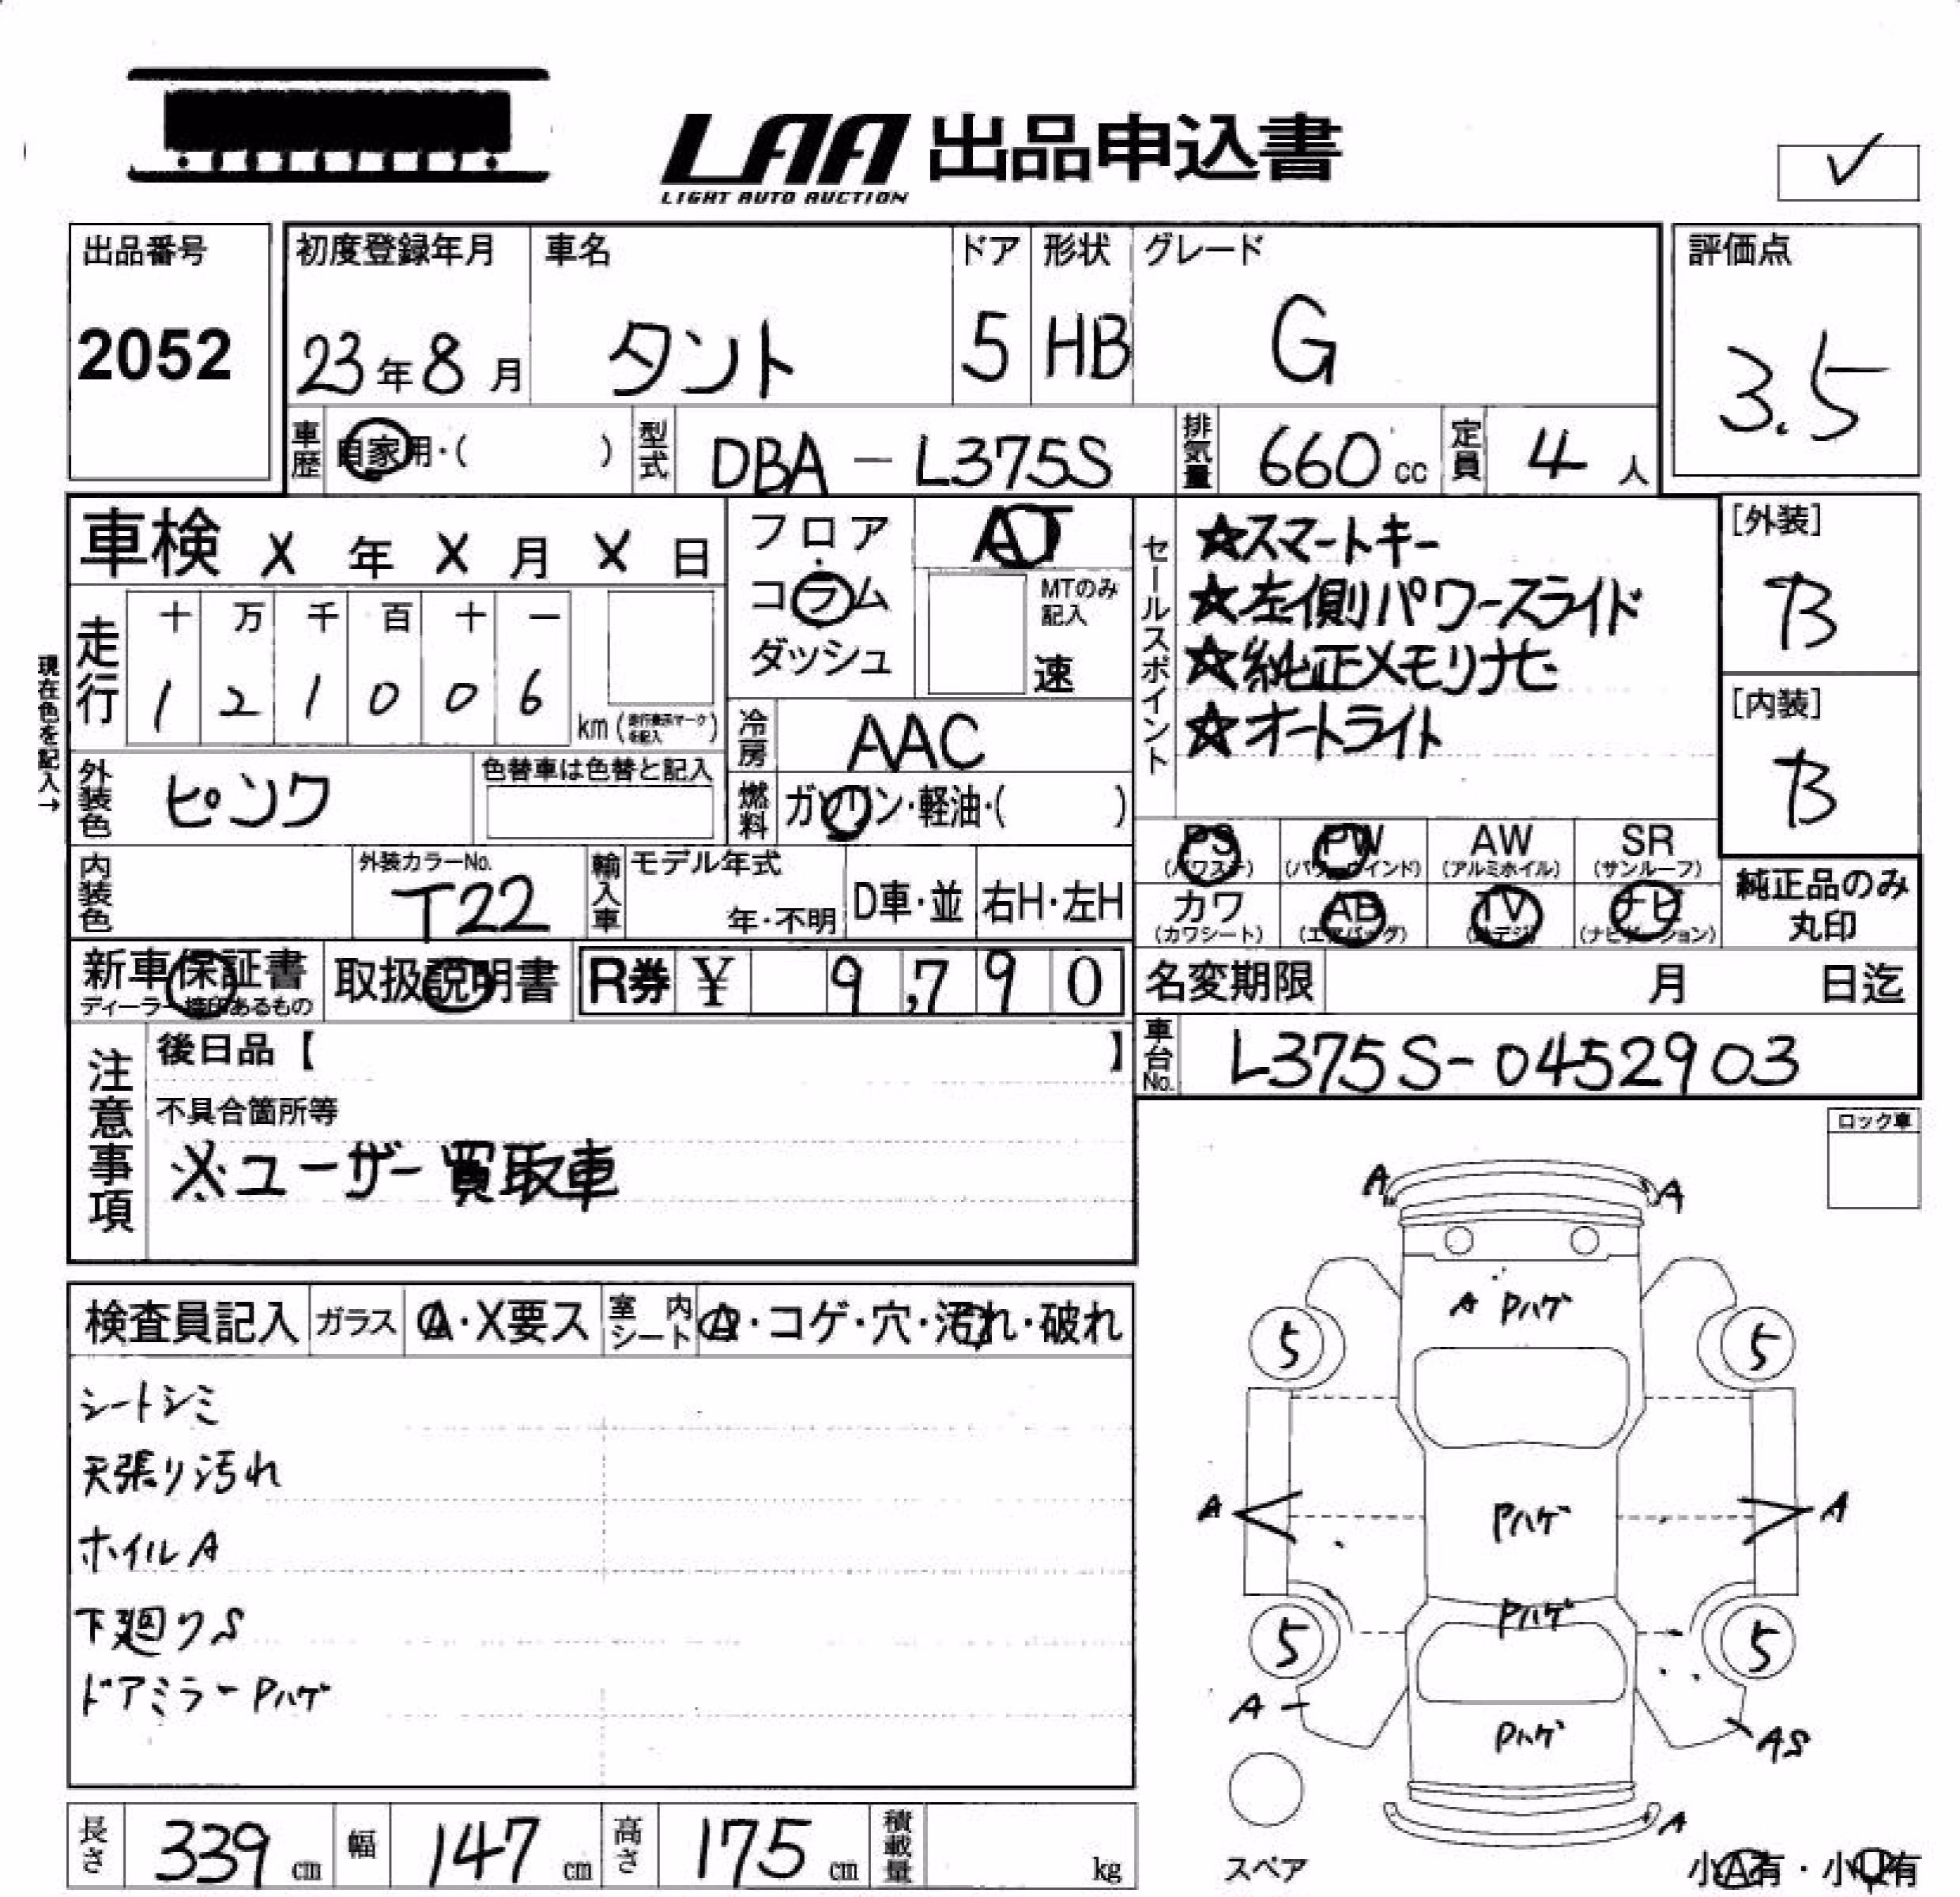 LAA 出品申込書
LIGHT AUTO AUCTION
✓
出品番号
2052
初度登録年月
23年8月
車名
タント
ドア
5
形状
HB
グレード
G
評価点
3.5
車歴
自家用・( )
型式
DBA-L375S
排気量
660cc
定員
4人
車検 X年X月X日
フロア・コラム
ダッシュ
AT
MTのみ記入
速
セールスポイント
☆スマートキー
☆左側パワースライド
☆純正メモリナビ
☆オートライト
[外装]
B
[内装]
B
現在色を記入→
走行
十 万 千 百 十 一
1 2 1 0 0 6
km (走行表示マークを記入)
冷房
AAC
外装色
ピンク
色替車は色替と記入
燃料
ガソリン・軽油・( )
PS (パワステ)
PW (パワーウインド)
AW (アルミホイル)
SR (サンルーフ)
カワ (カワシート)
AB (エアバッグ)
TV (地デジ)
ナビ (ナビゲーション)
純正品のみ
丸印
内装色
外装カラーNo.
T22
輸入車
モデル年式
年・不明
D車・並
右H・左H
新車保証書
ディーラー捺印あるもの
取扱説明書
R券 ¥ 9,790
名変期限 月 日迄
車台No.
L375S-0452903
注意事項
後日品【 】
不具合箇所等
※ユーザー買取車
ロック車
検査員記入
ガラス
A・X要ス
室内シート
A・コゲ・穴・汚れ・破れ
シートシミ
天張り汚れ
ホイルA
下廻りS
ドアミラーPハゲ
A A
A Pハゲ
5 5
A Pハゲ A
Pハゲ
5 5
A
Pハゲ
AS
A
スペア
小A有・小U有
長さ
339cm
幅
147cm
高さ
175cm
積載量
kg